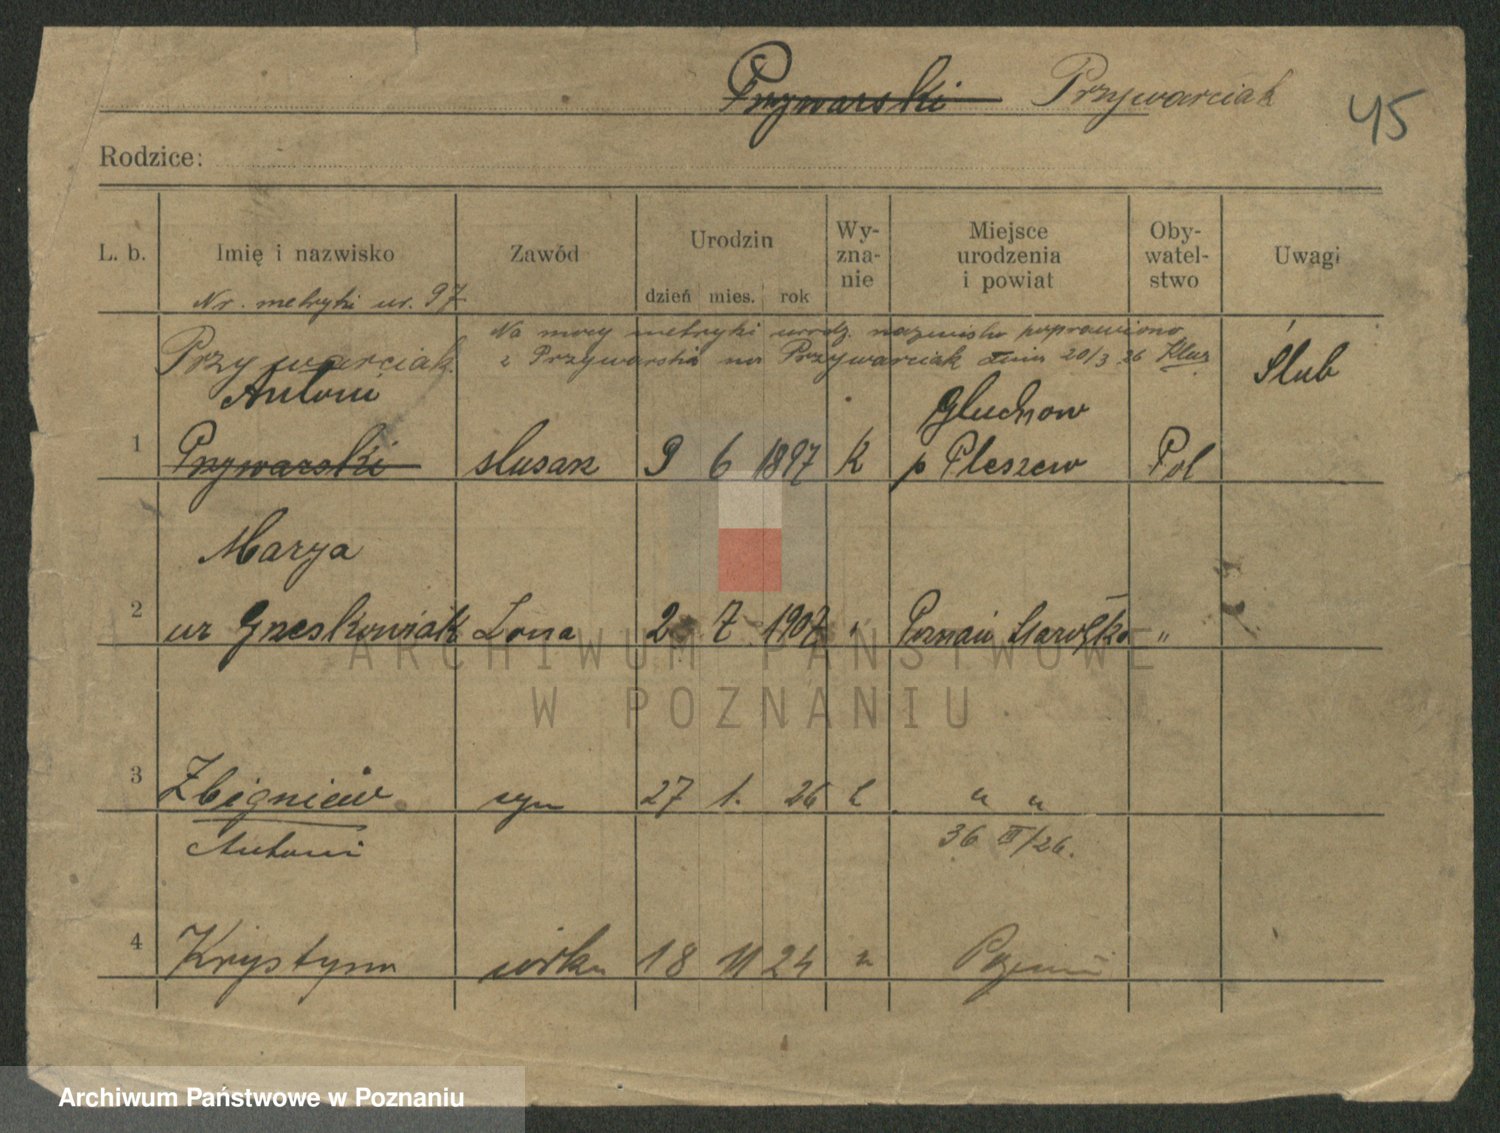 Przywarski Przywarciak
45
Rodzice:
L. b. Imię i nazwisko Zawód Urodzin dzień mies. rok Wy-zna-nie Miejsce urodzenia i powiat Oby-watel-stwo Uwagi
Nr. metryki ur. 97
Na mocy metryki urodz. nazwisko poprawiono
z Przywarskia na Przywarciak dnia 20/3 26
Przywarciak
Antoni Gluchow Ślub
1 Przywarski slusarz 9 6 1897 k p Pleszew Pol
Marya
2 ur Grzeskowiak Zona 2 7 1907 " Poznań Starołęka "
ARCHIWUM PAŃSTWOWE
W POZNANIU
3 Zbigniew syn 27 1. 26 k " "
Antoni 36 III/26.
4 Krystyna córka 18 11 24 " Poznań
Archiwum Państwowe w Poznaniu